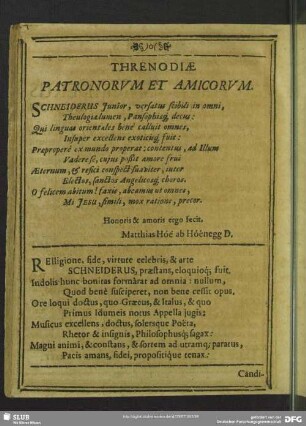 THRENODIÆ
PATRONORVM ET AMICORVM.
SCHNEIDERUS Junior, versatus scibili in omni,
Theologiæ lumen, Pansophicæq; decus:
Qui linguas orientales benè calluit omnes,
Insuper excellens exoticisq; fuit:
Præproperè ex mundo properat; contentus, ad Illum
Vadere se, cujus possit amore frui
Æternum, & refici conspectu suaviter, inter
Electos, sanctos Angelicosq; choros.
O felicem abitum! faxis, abeamus ut omnes,
Mi JESU, simili, mox ratione, precor.
Honoris & amoris ergo fecit.
Matthias Hóe ab Hóenegg D.
RElligione, fide, virtute celebris, & arte
SCHNEIDERUS, præstans, eloquioq; fuit.
Indolis hunc bonitas formârat ad omnia: nullum,
Quod benè susciperet, non bene cessit opus.
Ore loqui doctus, quo Græcus, & Italus, & quo
Primus Idumeis notus Appella jugis:
Musicus excellens, doctus, solersque Poëta,
Rhetor & insignis, Philosophusq; sagax:
Magni animi, & constans, & sortem ad utramq; paratus,
Pacis amans, fidei, propositique tenax.
Candi-
SLUB
DFG